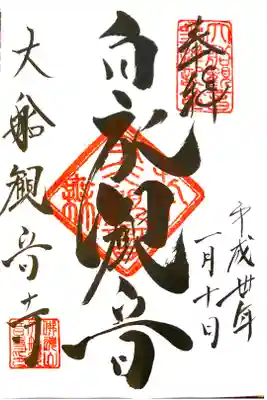 奉拝
白衣観音
大船観音寺
平成卅年
一月十日